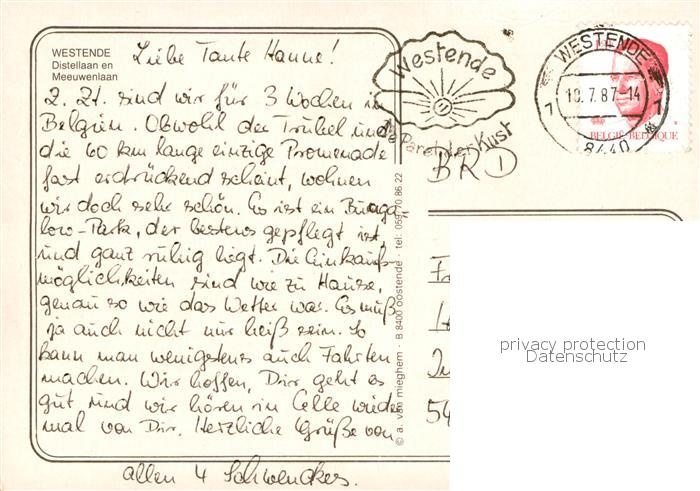 WESTENDE
Distellaan en
Meeuwenlaan
Liebe Tante Hanne!
Z. Zt. sind wir für 3 Wochen in
Belgien. Obwohl der Trubel und
die 60 km lange einzige Promenade
fast erdrückend scheint, wohnen
wir doch sehr schön. Es ist ein Bunga
low-Park, der bestens gepflegt ist,
und ganz ruhig liegt. Die Einkaufs-
möglichkeiten sind wie zu Hause,
genau so wie das Wetter war. Es muß
ja auch nicht nur heiß sein. So
kann man wenigstens auch Fahrten
machen. Wir hoffen, Dir geht es
gut und wir hören in Celle wieder
mal von Dir. Herzliche Grüße von
allen 4 Schwenckes.
© a. van mieghem - B 8400 oostende - tel: 059/70 86 22
Westende
Parel der Kust
WESTENDE
10.7.87-14
1 1
8440
BELGIË BELGIQUE
BRD
54
privacy protection
Datenschutz